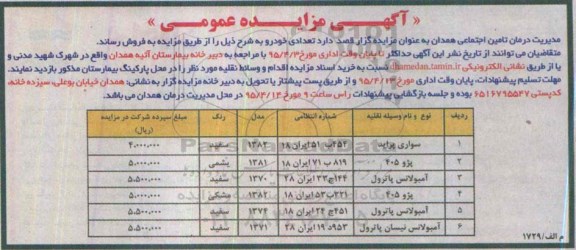 « آگهـی مزایـده عمومـی »
مدیریت درمان تامین اجتماعی همدان به عنوان مزایده گزار قصد دارد تعدادی خودرو به شرح ذیل را از طریق مزایده به فروش رساند.
متقاضیان می توانند از تاریخ نشر این آگهی حداکثر تا پایان وقت اداری مورخ ۹۵/۴/۳ با مراجعه به دبیر خانه بیمارستان آتیه همدان واقع در شهرک شهید مدنی و
یا از طریق نشانی الکترونیکی hamedan.tamin.ir نسبت به خرید اسناد مزایده اقدام و وسایط نقلیه مورد نظر را در محل پارکینگ بیمارستان مذکور بازدید نمایند.
مهلت تسلیم پیشنهادات، پایان وقت اداری مورخ ۹۵/۴/۱۳ و از طریق پست پیشتاز یا تحویل به دبیر خانه مزایده گزار به نشانی: همدان خیابان بوعلی، سیزده خانه،
کدپستی ۶۵۱۶۷۹۵۵۴۷ بوده و جلسه بازگشایی پیشنهادات راس ساعت ۹ مورخ ۹۵/۴/۱۴ در محل مدیریت درمان همدان می باشد.
ردیف نوع و نام وسیله نقلیه شماره انتظامی مدل رنگ مبلغ سپرده شرکت در مزایده (ریال)
۱ سواری پراید ایران ۱۸ ۱۳۸۲ سفید ۴،۰۰۰،۰۰۰
۲ پژو ۴۰۵ ۸۱۹ ب ۷۱ ایران ۱۸ ۱۳۸۱ یشمی ۵،۵۰۰،۰۰۰
۳ آمبولانس پاترول ایران ۲۸ ۱۳۷۰ سفید ۵،۵۰۰،۰۰۰
۴ پژو ۴۰۵ ایران ۱۸ ۱۳۸۲ مشکی ۵،۵۰۰،۰۰۰
۵ آمبولانس پاترول ایران ۱۸ ۱۳۷۴ سفید ۵،۵۰۰،۰۰۰
۶ آمبولانس نیسان پاترول ایران ۲۸ ۱۳۷۱ سفید ۵،۵۰۰،۰۰۰
م الف/۱۷۲۹